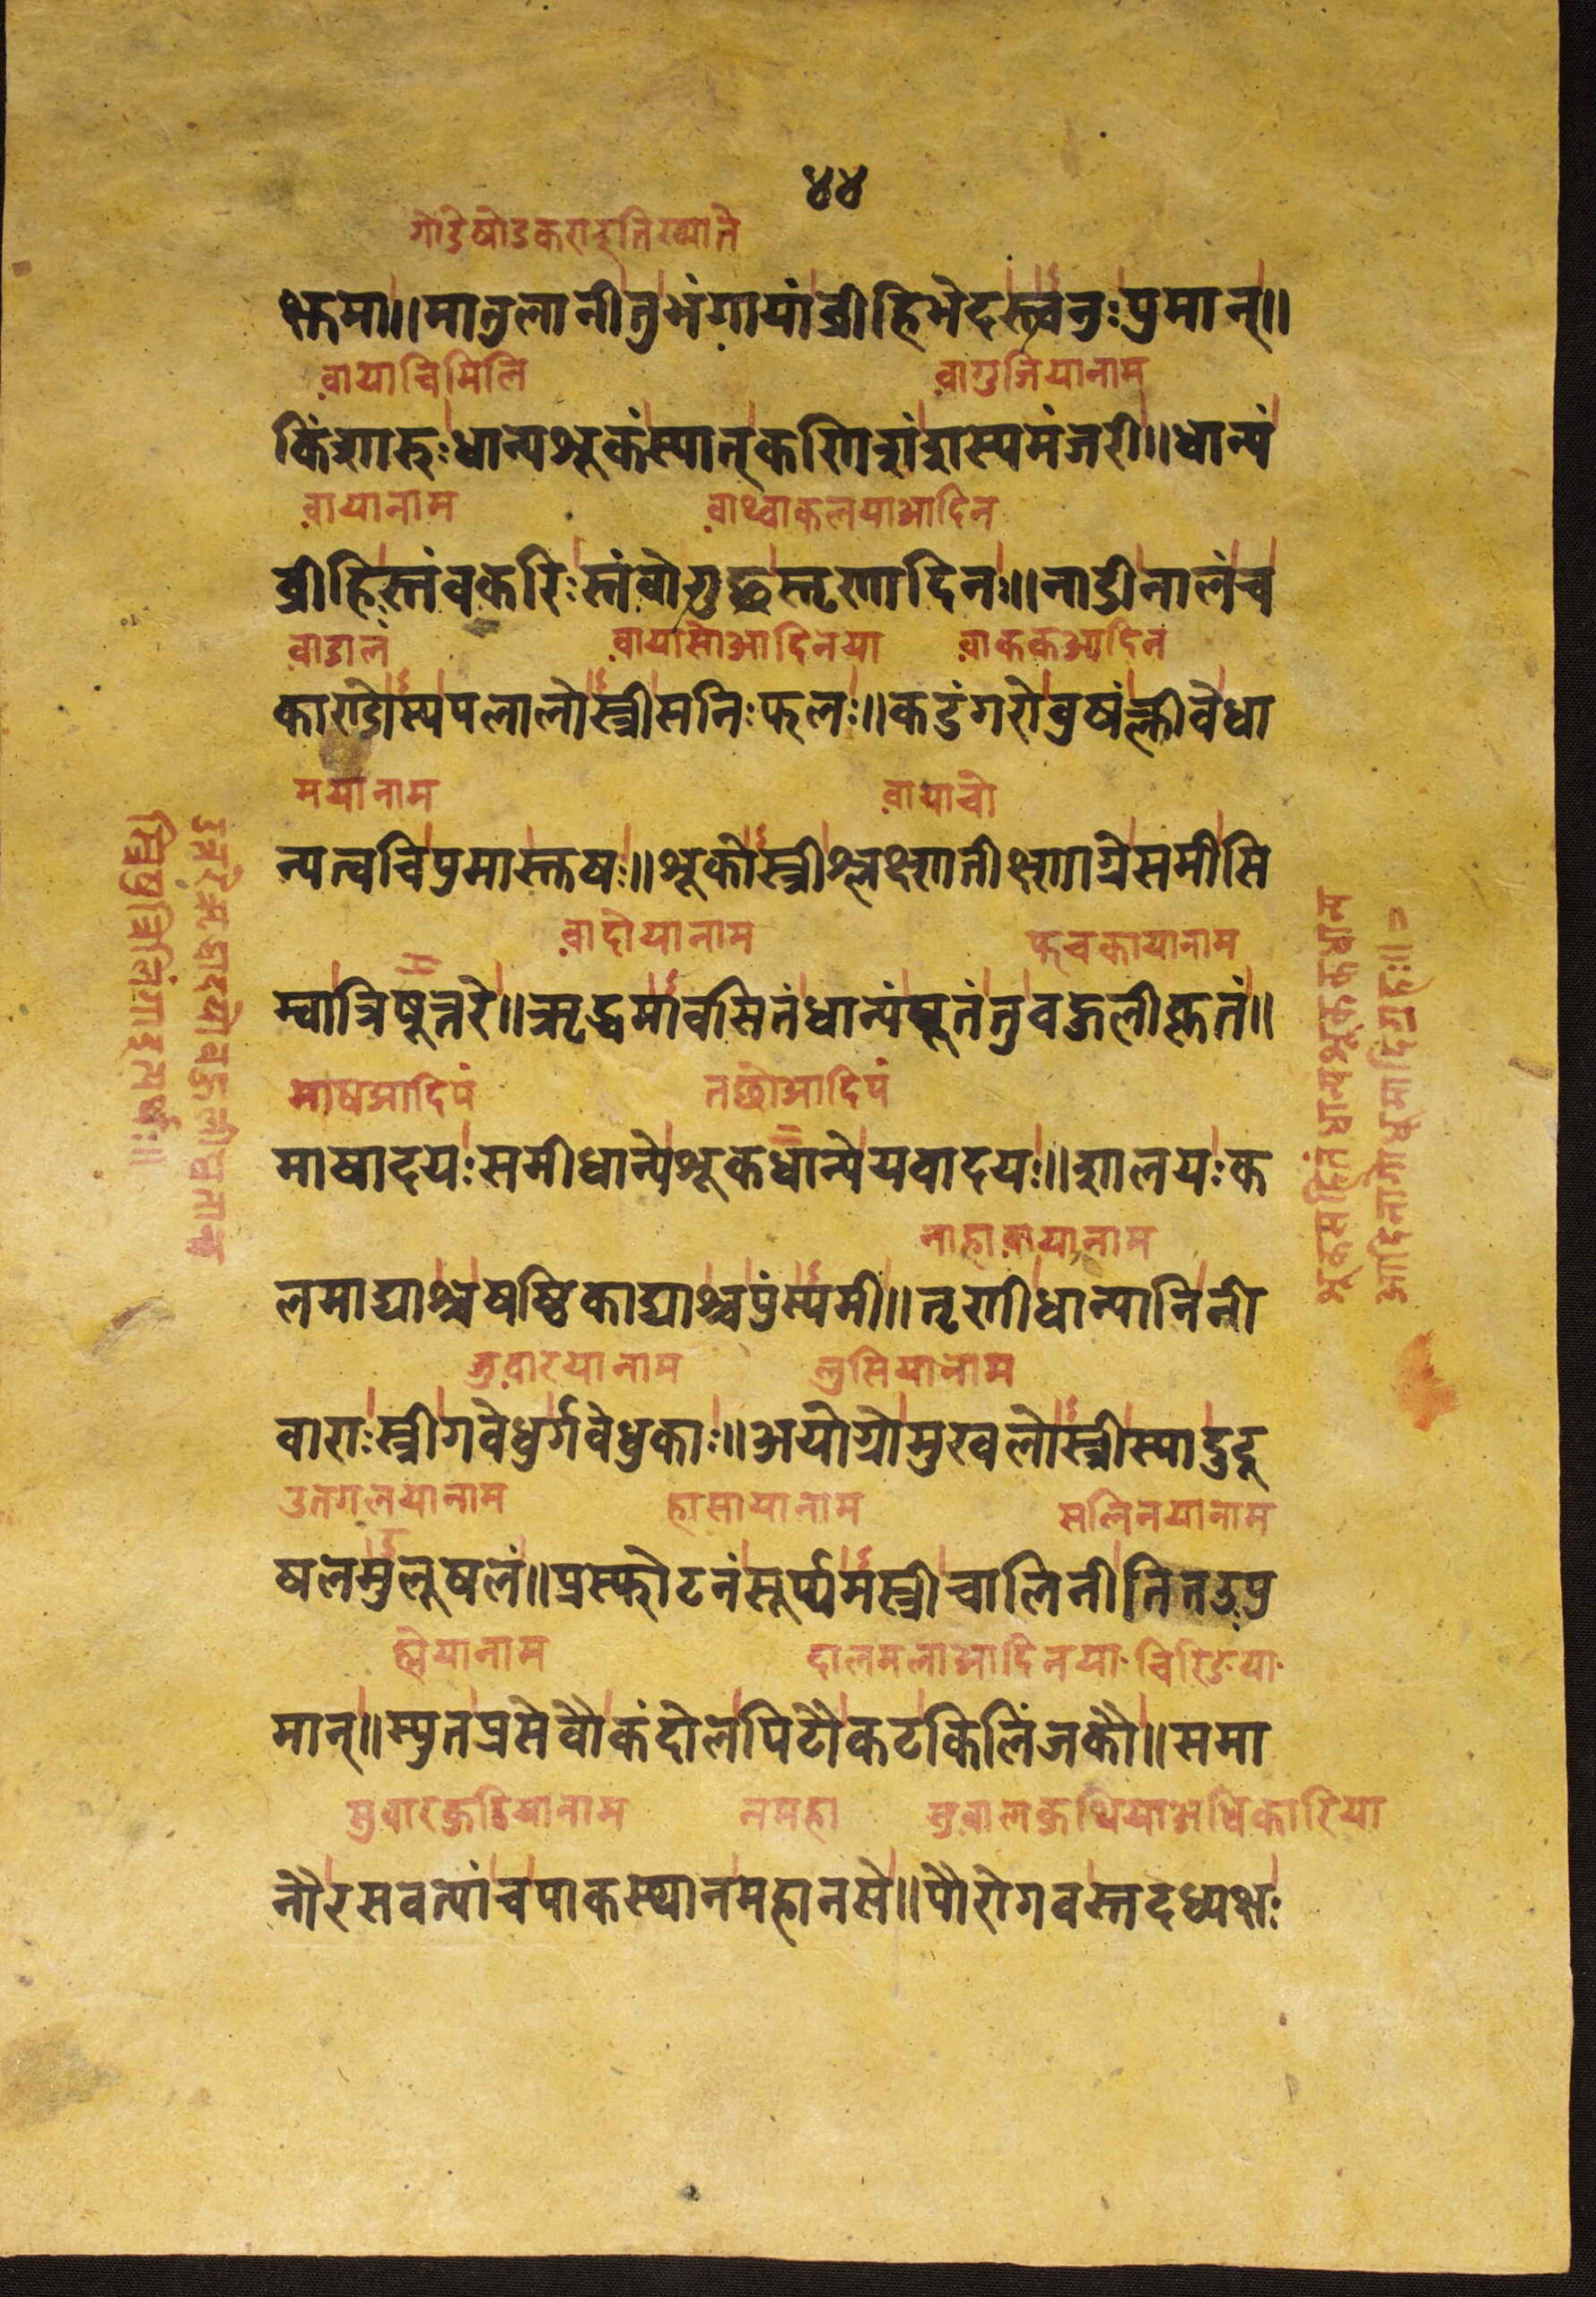 ४४
गोडेषोडकरादूतिख्याते
क्षुमा॥मातुलानीतुभंगायांव्रीहिभेदस्त्वनुःपुमान्॥
वायाचिमिलि वागुजियानाम
किंशारुःधान्यशूकंस्यात्कणिशंशस्यमंजरी॥धान्यं
वायानाम वाथ्वाकलयाआदिन
व्रीहिस्तंवकरिःस्तंवोगुच्छस्तृणादिनः॥नाडीनालंच
वाडालं वायासोआदिनया वाककआदिन
काण्डोस्यपलालोस्त्रीसनिःफलः॥कडंगरोवुषंक्लीवेधा
मयानाम वायाचो
न्यत्वचिपुमास्तुषः॥शूकोस्त्रीश्लक्ष्णतीक्ष्णाग्रेसमीसि
वादोयानाम फचकायानाम
म्वात्रिषूत्तरे॥ऋद्धमावसितंधान्यंपूतंतुवहुलीकृतं॥
माषआदिपं तछोआदिपं
माषादयःसमीधान्येशूकधान्येयवादयः॥शालयःक
नाहावायानाम
लमाद्याश्चषष्ठिकाद्याश्चपुंस्यमी॥तृणधान्यानिनी
भुवारयानाम लुसियानाम
वाराःस्त्रीगवेधुर्गवेधुकाः॥अयोग्रोमुखलोस्त्रीस्यादुदू
उतगलयानाम हासायानाम सलिनयानाम
षलमुलूषलं॥प्रस्फोटनंसूर्प्यमस्त्रीचालिनीतितउपु
ह्मेयानाम दालमलाआदिनया चिरिङया
मान्॥स्युतप्रसेवौकंदोलपिटौकटकिलिंजकौ॥समा
भुवारकुठियानाम नमहा भुवालकुथियाअधिकारिया
नौरसवत्यांचपाकस्थानमहानसे॥पौरोगवस्तदध्यक्षः
त्रिषुत्रिलिंगाइत्यर्थः॥
आदिनागोधूमादिग्रहः॥